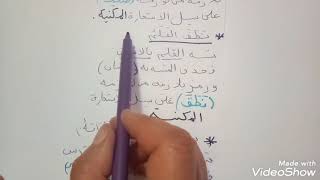 على سبيل الاستعارة المكنية.
* نطق القلم
شبه القلم بالإنسان
وحذف المشبه به (الإنسان)
ورمز بلازمة من لوازمه
(نطق) على سبيل الاستعارة
المكنية
Made with
VideoShow